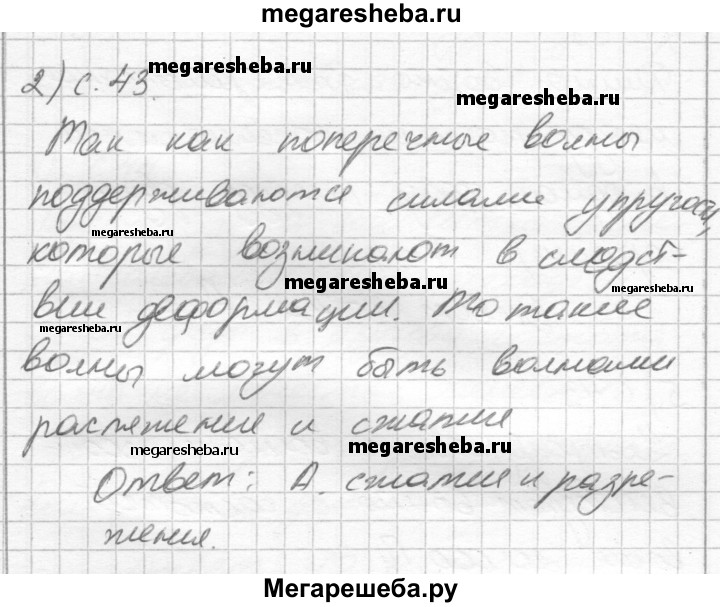 megaresheba.ru
2) с. 43.
megaresheba.ru
megaresheba.ru
Так как поперечные волны
поддерживаются силами упругости,
megaresheba.ru
которые возникают в следст-
megaresheba.ru
вии деформации. То такие
megaresheba.ru
megaresheba.ru
волны могут быть волнами
растяжения и сжатия.
megaresheba.ru
megaresheba.ru
Ответ: А. сжатия и разре-
жения.
Мегарешеба.ру